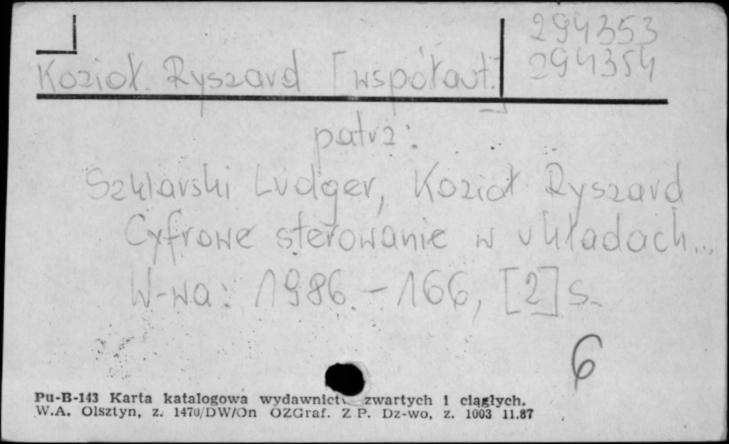 294353
294354
Kozioł Ryszard [współaut.]
patrz:
Szklarski Ludger, Kozioł Ryszard
Cyfrowe sterowanie w układach...
W-wa: 1986. - 166, [2] s.
6
Pu-B-143 Karta katalogowa wydawnictw zwartych i ciągłych.
W.A. Olsztyn, z. 1470/DW/On OZGraf. Z P. Dz-wo, z. 1003 11.87